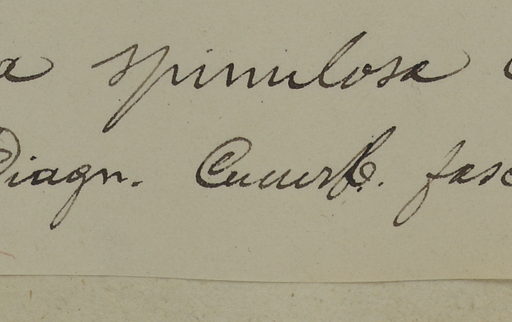 a spinulosa C
Diagn. Cucurb. fasc